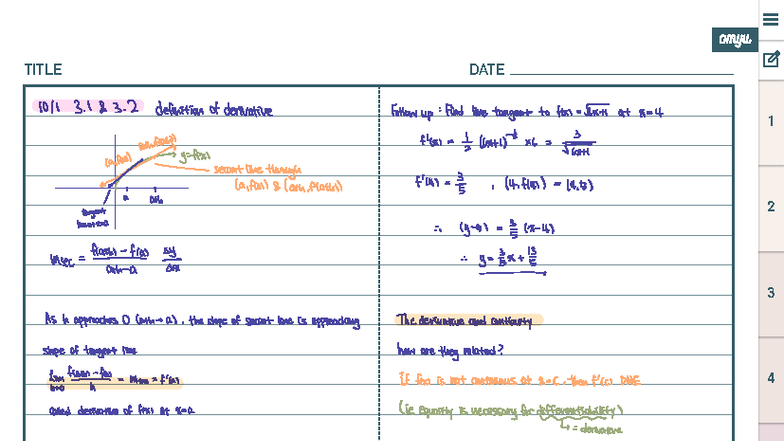 omyu
TITLE
DATE
10/1 3.1 & 3.2 definition of derivative
y=f(x)
secant line through
(a, f(a)) & (a+h, f(a+h))
a
a+h
tangent
msec = f(a+h) - f(a) / a+h-a Δy / Δx
As h approaches 0 (a+h → a), the slope of secant line is approaching
slope of tangent line
lim h→0 f(a+h) - f(a) / h = mtan = f'(a)
called derivative of f(x) at x=a
Follow up : Find line tangent to f(x) = √6x+1 at x=4
f'(x) = 1/2 (6x+1)^-1/2 ×6 = 3/√6x+1
f'(4) = 3/5 , (4, f(4)) = (4,5)
∴ (y-5) = 3/5 (x-4)
∴ y = 3/5 x + 13/5
The derivative and continuity
how are they related?
If f(x) is not continuous at x=c, then f'(c) DNE
(ie equality is necessary for differentiability)
↳ = derivative
1
2
3
4